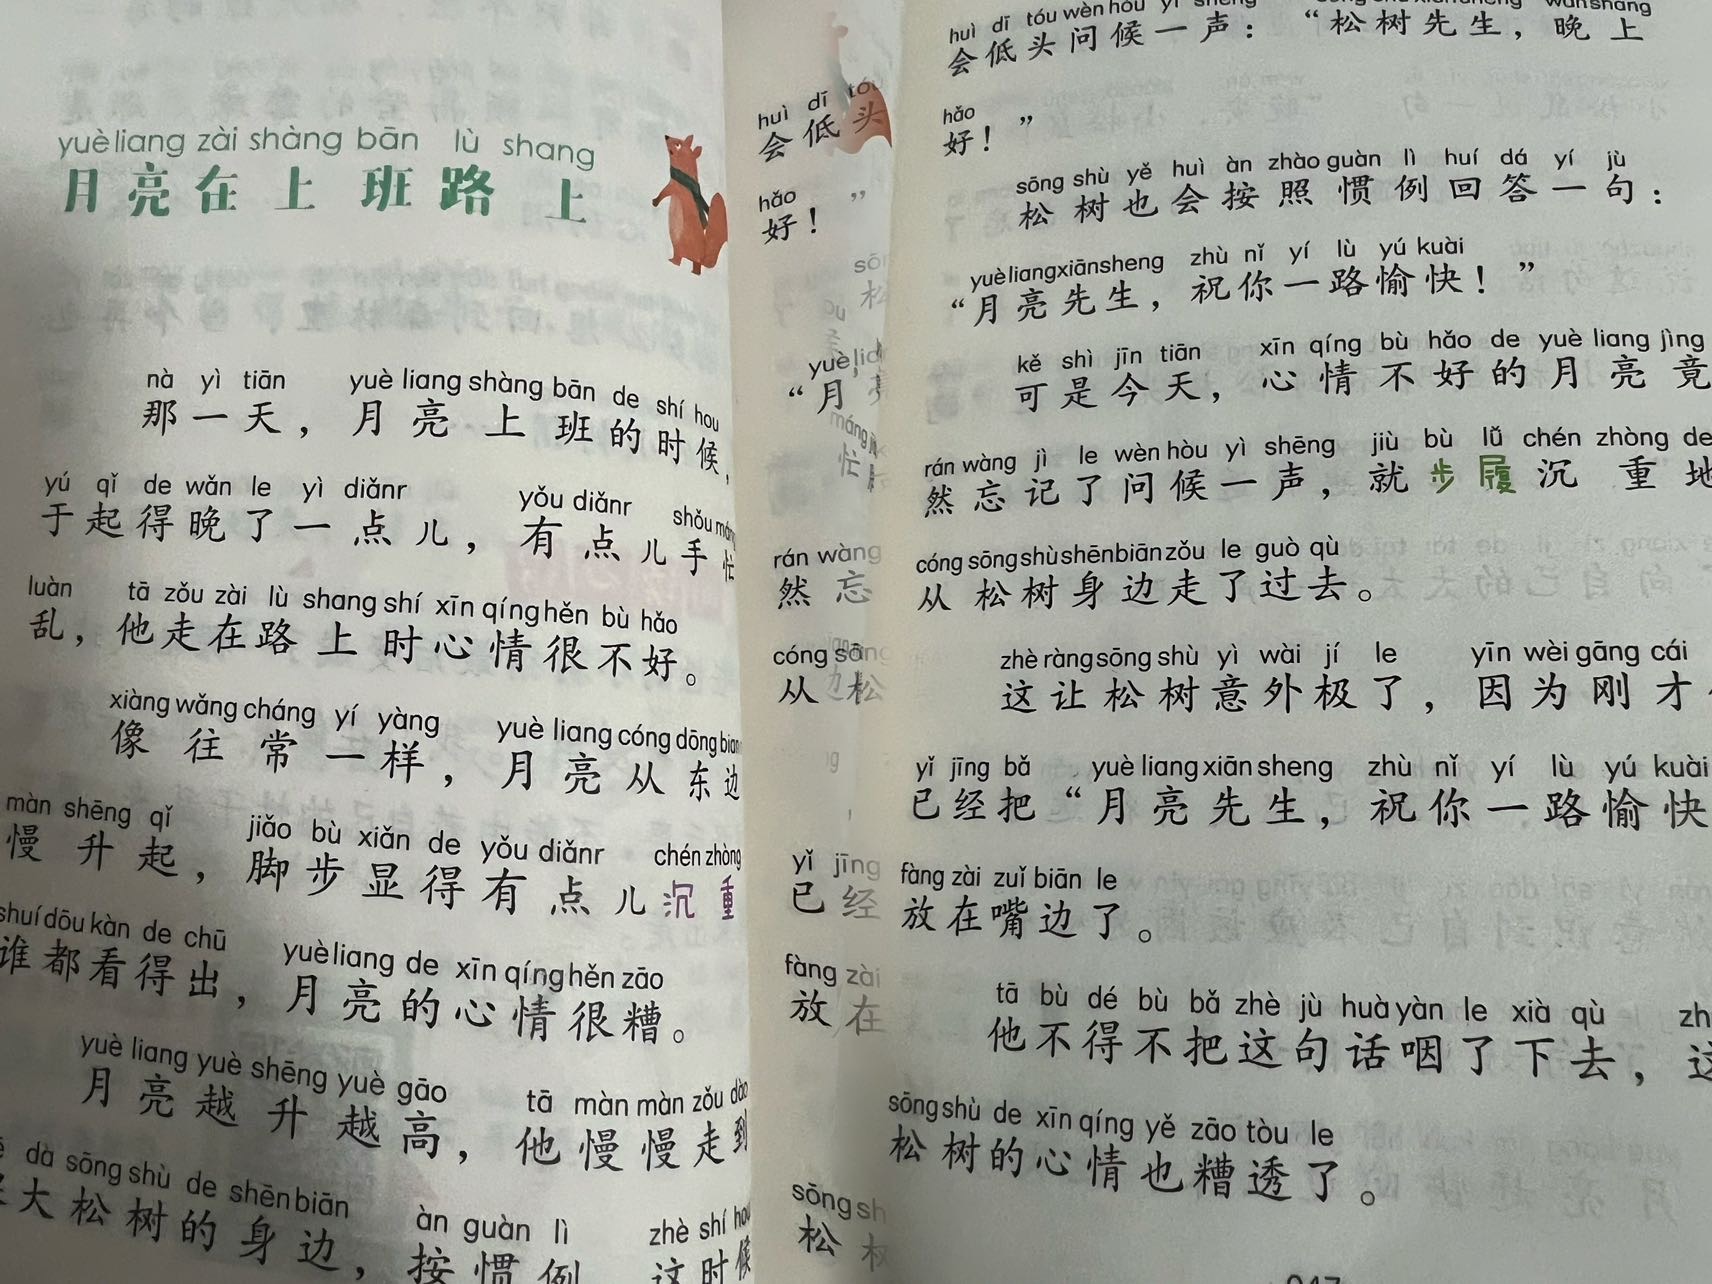 yuè liang zài shàng bān lù shang
月亮在上班路上
nà yì tiān yuè liang shàng bān de shí hou
那一天，月亮上班的时候，
yú qǐ de wǎn le yì diǎnr yǒu diǎnr shǒu máng
于起得晚了一点儿，有点儿手忙
luàn tā zǒu zài lù shang shí xīn qíng hěn bù hǎo
乱，他走在路上时心情很不好。
xiàng wǎng cháng yí yàng yuè liang cóng dōng bian
像往常一样，月亮从东边
màn shēng qǐ jiǎo bù xiǎn de yǒu diǎnr chén zhòng
慢升起，脚步显得有点儿沉重
shuí dōu kàn de chū yuè liang de xīn qíng hěn zāo
谁都看得出，月亮的心情很糟。
yuè liang yuè shēng yuè gāo tā màn màn zǒu dào
月亮越升越高，他慢慢走到
dà sōng shù de shēn biān àn guàn lì zhè shí hou
大松树的身边，按惯例 这时候
huì dī tóu
会低头
hǎo
好！”
sō
松
yuè lia
“月亮
máng
忙
rán wàng
然忘
cóng sōng
从松
yǐ jīng
已经
fàng zài
放在
sōng sh
松树
huì dī tóu wèn hòu yì shēng wǎn shang
会低头问候一声：“松树先生，晚上
hǎo
好！”
sōng shù yě huì àn zhào guàn lì huí dá yí jù
松树也会按照惯例回答一句：
yuè liang xiān sheng zhù nǐ yí lù yú kuài
“月亮先生，祝你一路愉快！”
kě shì jīn tiān xīn qíng bù hǎo de yuè liang jìng
可是今天，心情不好的月亮竟
rán wàng jì le wèn hòu yì shēng jiù bù lǚ chén zhòng de
然忘记了问候一声，就步履沉重地
cóng sōng shù shēn biān zǒu le guò qù
从松树身边走了过去。
zhè ràng sōng shù yì wài jí le yīn wèi gāng cái
这让松树意外极了，因为刚才
yǐ jīng bǎ yuè liang xiān sheng zhù nǐ yí lù yú kuài
已经把“月亮先生，祝你一路愉快
fàng zài zuǐ biān le
放在嘴边了。
tā bù dé bù bǎ zhè jù huà yàn le xià qù zh
他不得不把这句话咽了下去，这
sōng shù de xīn qíng yě zāo tòu le
松树的心情也糟透了。